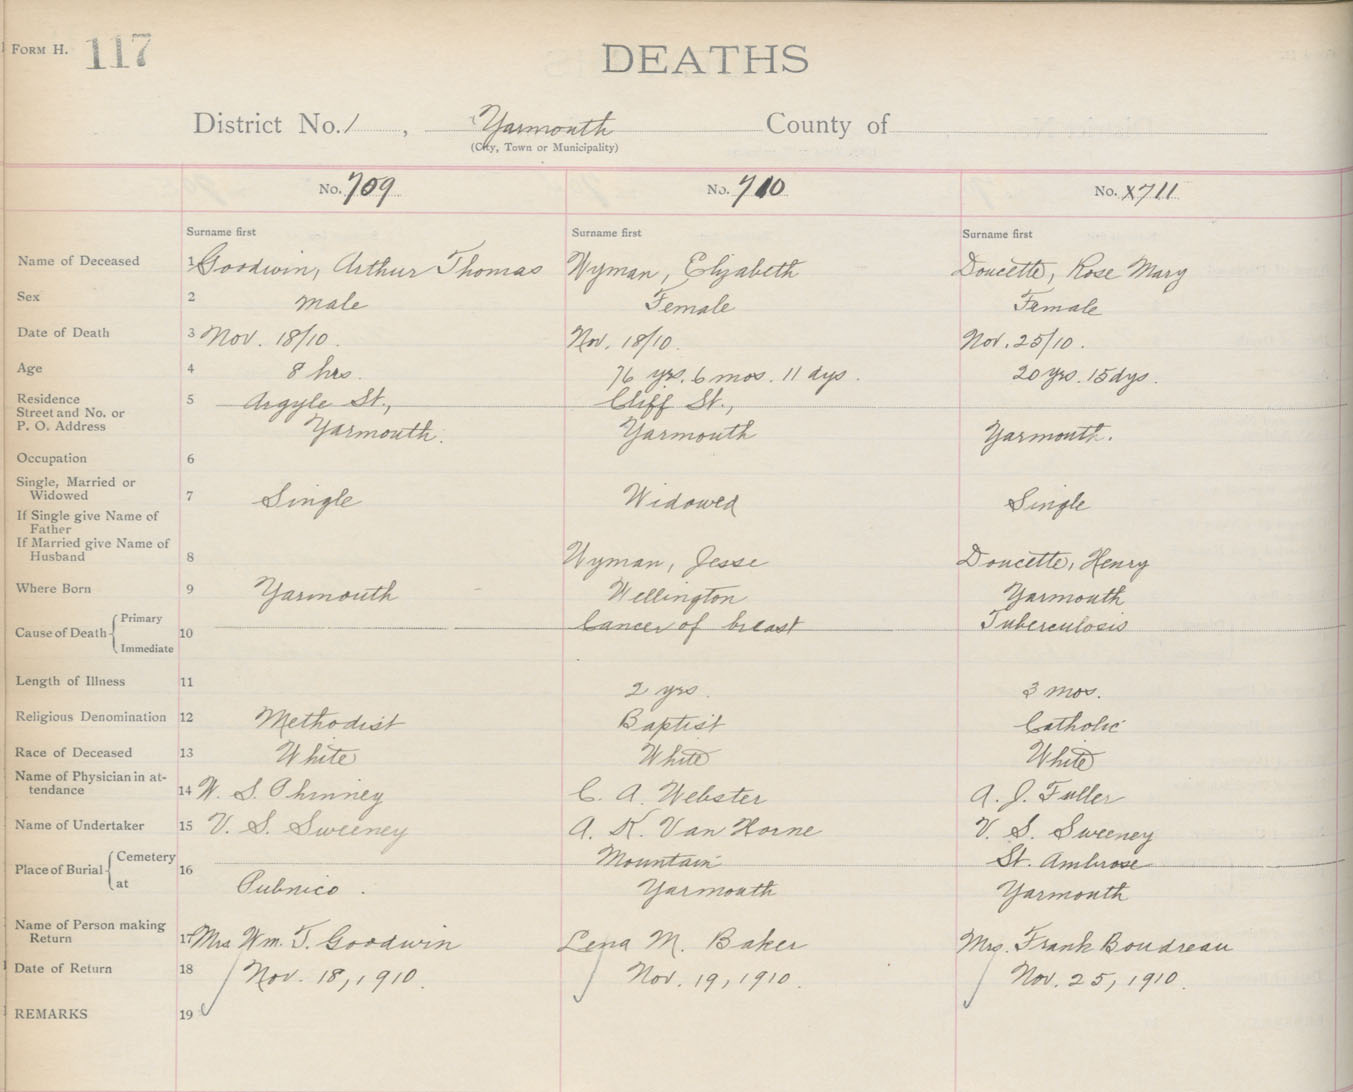 FORM H. 117
DEATHS
District No. 1, Yarmouth County of
(City, Town or Municipality)
No. 709 No. 710 No. X711
Surname first Surname first Surname first
Name of Deceased 1 Goodwin, Arthur Thomas Wyman, Elizabeth Doucette, Rose Mary
Sex 2 Male Female Female
Date of Death 3 Nov. 18/10. Nov. 18/10. Nov. 25/10.
Age 4 8 hrs. 76 yrs. 6 mos. 11 dys. 20 yrs. 15 dys.
Residence 5 Argyle St., Cliff St.,
Street and No. or
P. O. Address Yarmouth. Yarmouth Yarmouth.
Occupation 6
Single, Married or
Widowed 7 Single Widowed Single
If Single give Name of
Father
If Married give Name of
Husband 8 Wyman, Jesse Doucette, Henry
Where Born 9 Yarmouth Wellington Yarmouth
Cause of Death Primary 10 Cancer of breast Tuberculosis
Immediate
Length of Illness 11 2 yrs. 3 mos.
Religious Denomination 12 Methodist Baptist Catholic
Race of Deceased 13 White White White
Name of Physician in at-
tendance 14 W. S. Phinney C. A. Webster A. J. Fuller
Name of Undertaker 15 V. S. Sweeney A. K. Van Horne V. S. Sweeney
Place of Burial Cemetery 16 Mountain St. Ambrose
at Pubnico. Yarmouth Yarmouth
Name of Person making
Return 17 Mrs Wm. T. Goodwin Lena M. Baker Mrs. Frank Boudreau
Date of Return 18 Nov. 18, 1910. Nov. 19, 1910. Nov. 25, 1910.
REMARKS 19